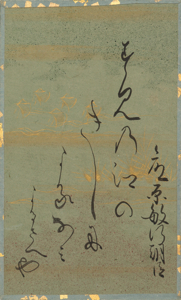 藤原敏行朝臣
すみの江の
きしに
よるなみ
よるさへや